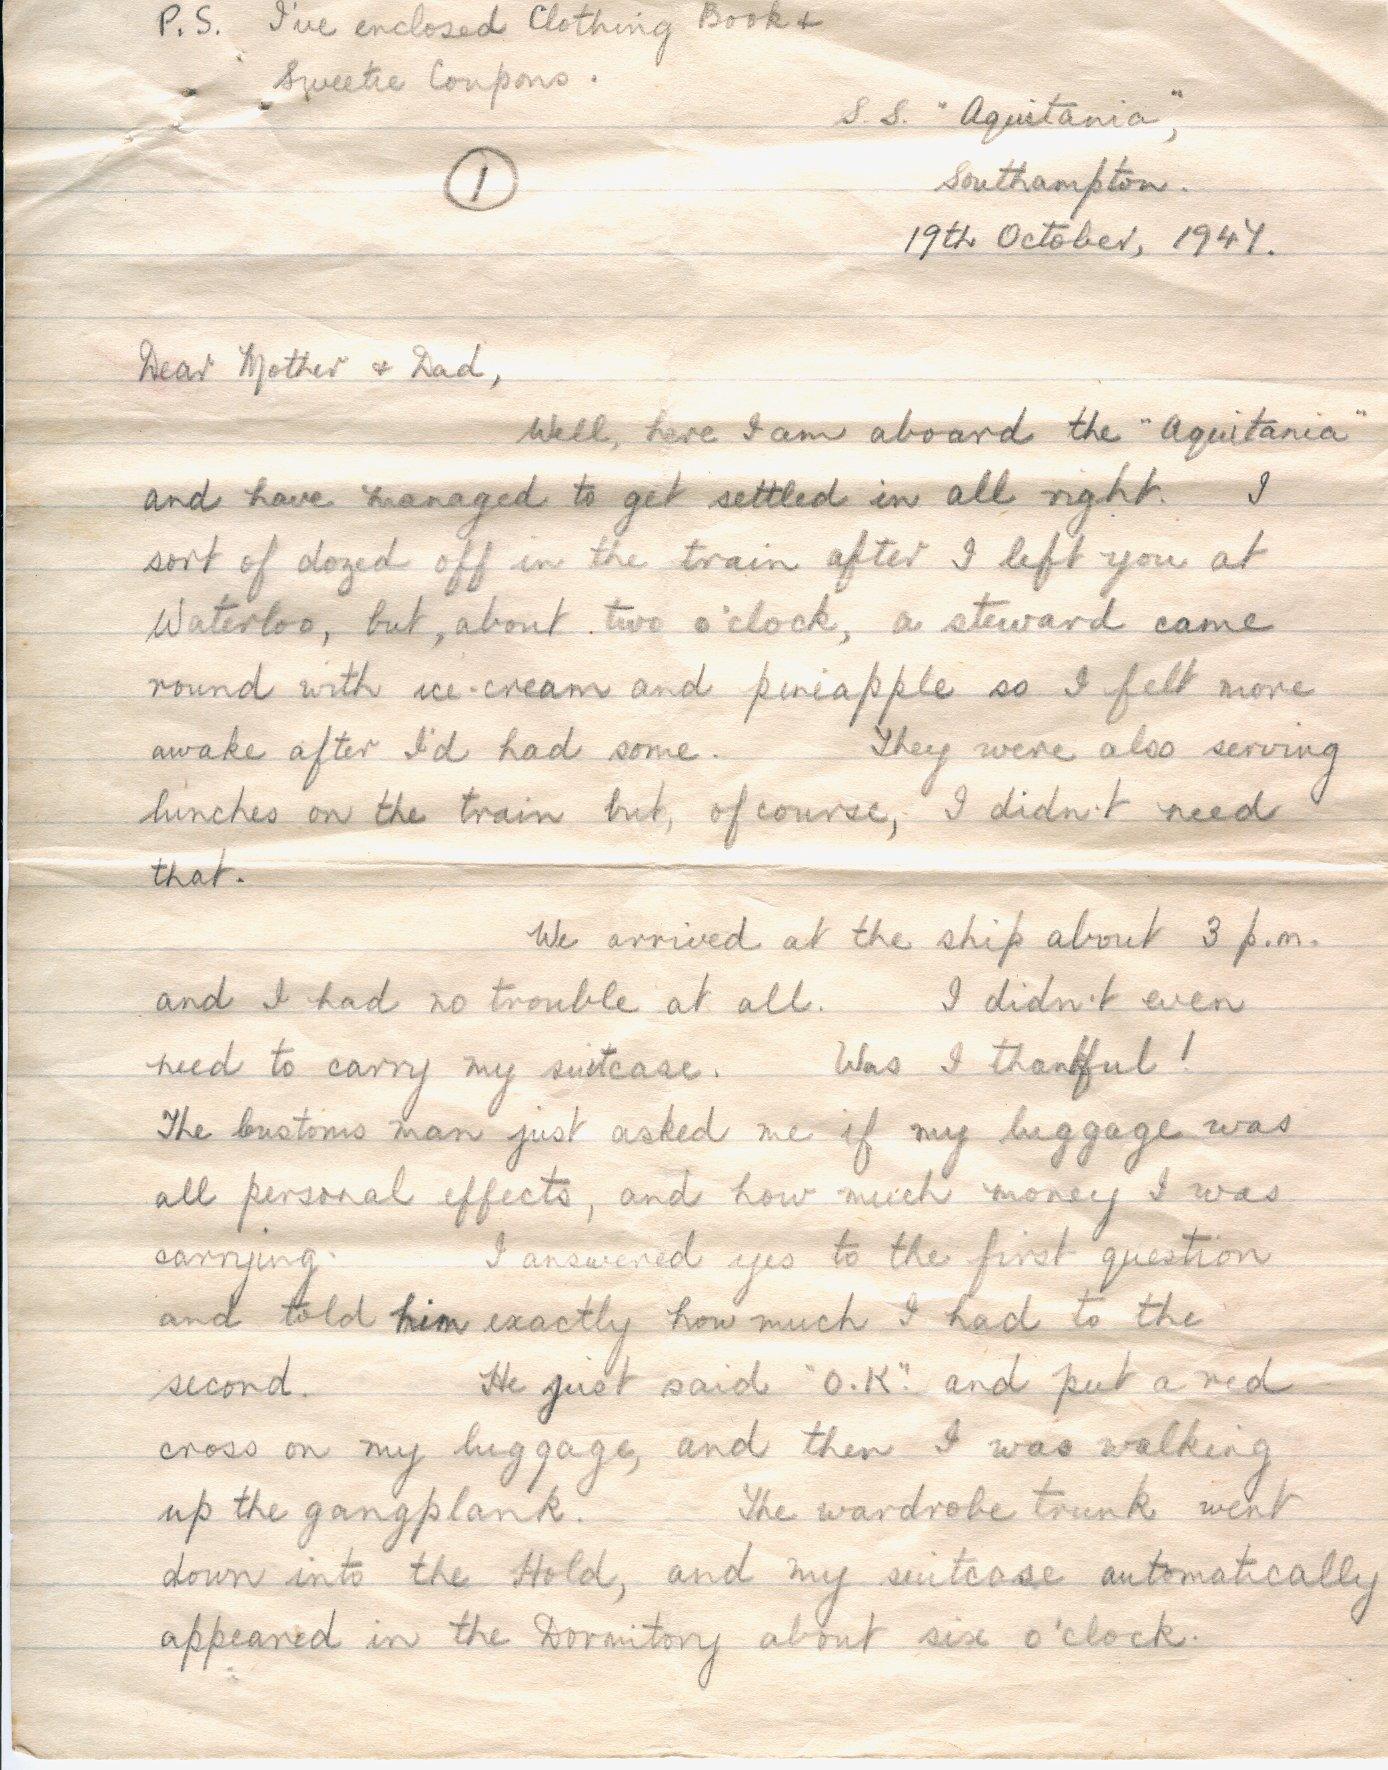 P.S. I've enclosed Clothing Book &
Sweetie Coupons.
S.S. "Aquitania",
Southampton.
1
19th October, 1947.
Dear Mother & Dad,
Well, here I am aboard the "Aquitania"
and have managed to get settled in all right. I
sort of dozed off in the train after I left you at
Waterloo, but, about two o'clock, a steward came
round with ice-cream and pineapple so I felt more
awake after I'd had some. They were also serving
lunches on the train but, of course, I didn't need
that.
We arrived at the ship about 3 p.m.
and I had no trouble at all. I didn't even
need to carry my suitcase. Was I thankful!
The Customs man just asked me if my luggage was
all personal effects, and how much money I was
carrying. I answered yes to the first question
and told him exactly how much I had to the
second. He just said "O.K." and put a red
cross on my luggage, and then I was walking
up the gangplank. The wardrobe trunk went
down into the Hold, and my suitcase automatically
appeared in the Dormitory about six o'clock.